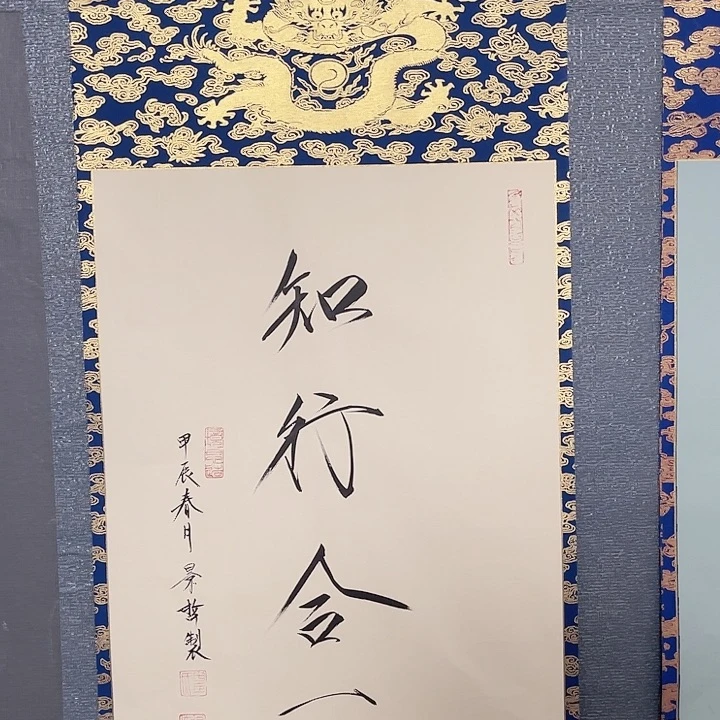 知行合一
甲辰春月 景哲製